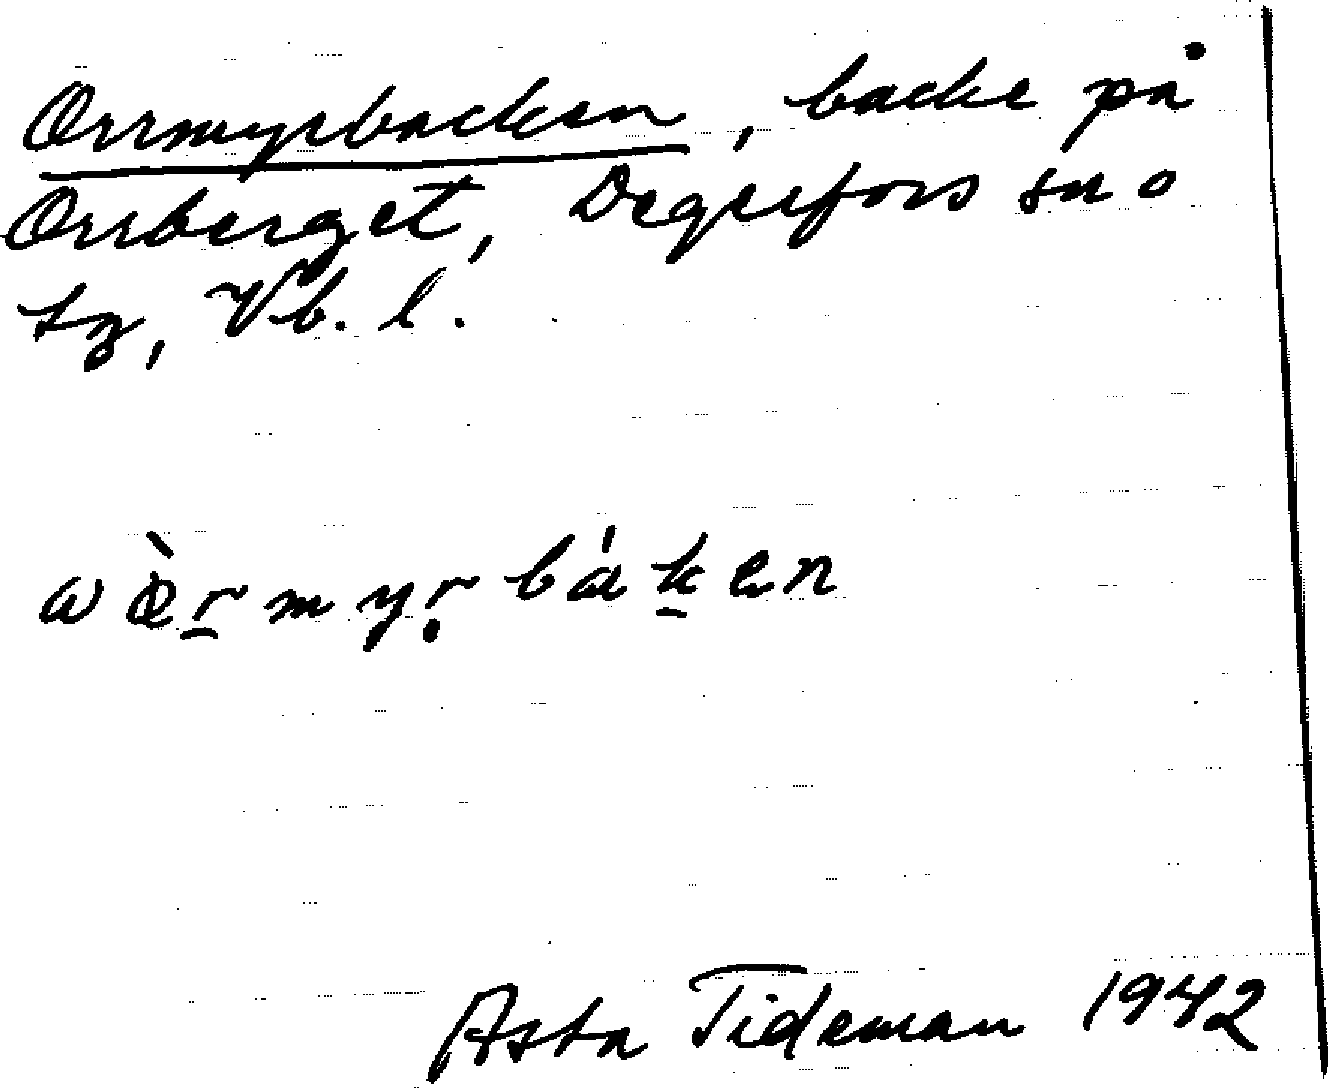 Orrmyrbacken, backe på
Orrberget, Degerfors sn o
tg, Vb. l.
ωœ̀r̠myṛbák̠en
Asta Tideman 1942